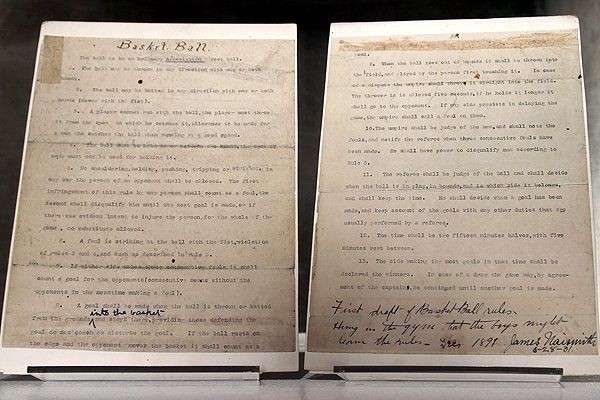 Basket Ball.
The ball to be an ordinary Association foot ball.
1. The ball may be thrown in any direction with one or both
hands.
2. The ball may be batted in any direction with one or both
hands (never with the fist).
3. A player cannot run with the ball, the player must throw
it from the spot on which he catches it, allowance to be made for
a man who catches the ball when running at a good speed.
4. The ball must be held
must not be used for holding it.
5. No shouldering, holding, pushing, tripping or striking in
any way the person of an opponent shall be allowed. The first
infringement of this rule by any person shall count as a foul, the
second shall disqualify him until the next goal is made, or if
there was evident intent to injure the person, for the whole of the
game, no substitute allowed.
6. A foul is striking at the ball with the fist, violation
of rules 3 and 4, and such as described in rule 5.
7. If either side makes three consecutive fouls, it shall
count a goal for the opponents (consecutive means without the
opponents in the meantime making a foul).
8. A goal shall be made when the ball is thrown or batted
into the basket
from the grounds and stays there, providing those defending the
goal do not touch or disturb the goal. If the ball rests on
the edge and the opponent moves the basket it shall count as a
goal.
9. When the ball goes out of bounds it shall be thrown into
the field, and played by the person first touching it. In case
of a dispute the umpire shall throw it straight into the field.
The thrower in is allowed five seconds, if he holds it longer it
shall go to the opponent. If any side persists in delaying the
game, the umpire shall call a foul on them.
10. The umpire shall be judge of the men, and shall note the
fouls, and notify the referee when three consecutive fouls have
been made. He shall have power to disqualify men according to
Rule 5.
11. The referee shall be judge of the ball and shall decide
when the ball is in play, in bounds, and to which side it belongs,
and shall keep the time. He shall decide when a goal has been
made, and keep account of the goals with any other duties that are
usually performed by a referee.
12. The time shall be two fifteen minutes halves, with five
minutes rest between.
13. The side making the most goals in that time shall be
declared the winners. In case of a draw the game may, by agree-
ment of the captains, be continued until another goal is made.
First draft of Basket Ball rules.
Hung in the gym that the boys might
learn the rules - Dec. 1891 James Naismith
6-28-31.